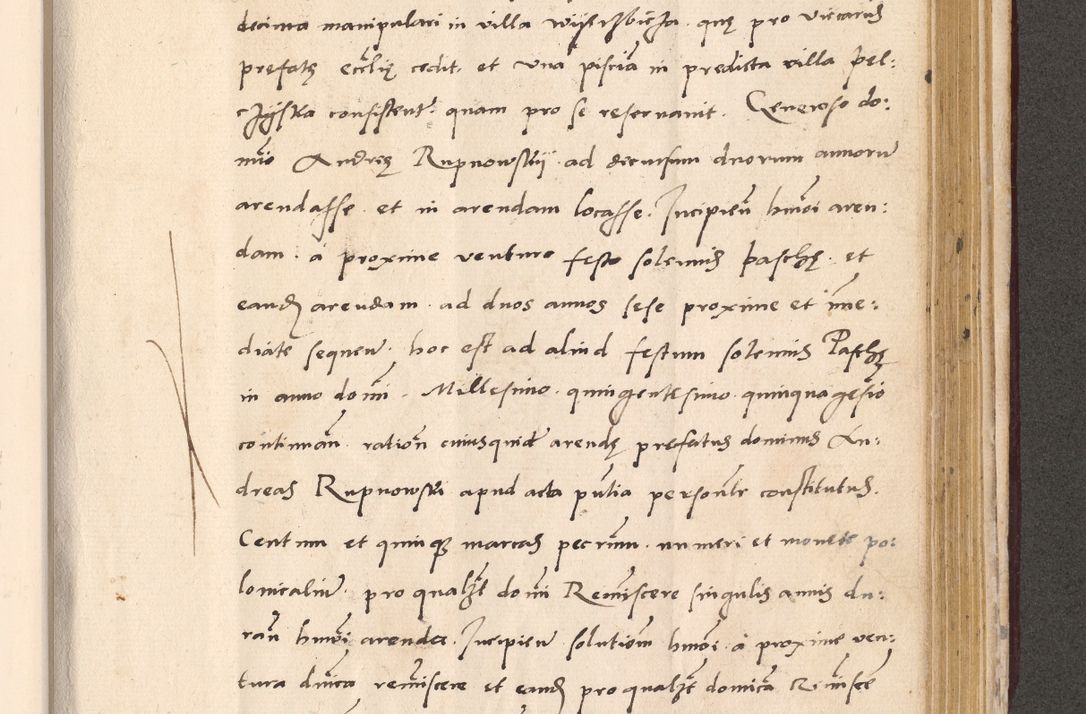 decima manipulari in villa quę pro vicariis
prefatę ecclię cedit. et una piscia in predicta villa pel:
consistent. quam pro se reservavit. Generoso do:
mino Andreę Rupnowskii ad decursum duorum annoru
arendasse. et in arendam locasse. Incipien hmoi aren:
dam. à proxime venturo festo solemnis paschę. et
eand arendam. ad duos annos sese proxime et imme:
diate sequen. hoc est ad aliud festum solemnis Paschę
in anno domi. Millesimo. quingentesimo. quinquagesio
continuan. ration cuiusquid arendę prefatus dominus An:
dreas Rupnowski apud acta pntia personlr constitutus.
Centum et quinqz marcas pecrum. numeri et monete po:
lonicaliu. pro qualzt domi Reminiscere singulis annis du:
ran hmoi arenda. Incipien solution hmoi. à proxime ven:
tura dnica reminiscere et eand pro qualzt domica Reminisce